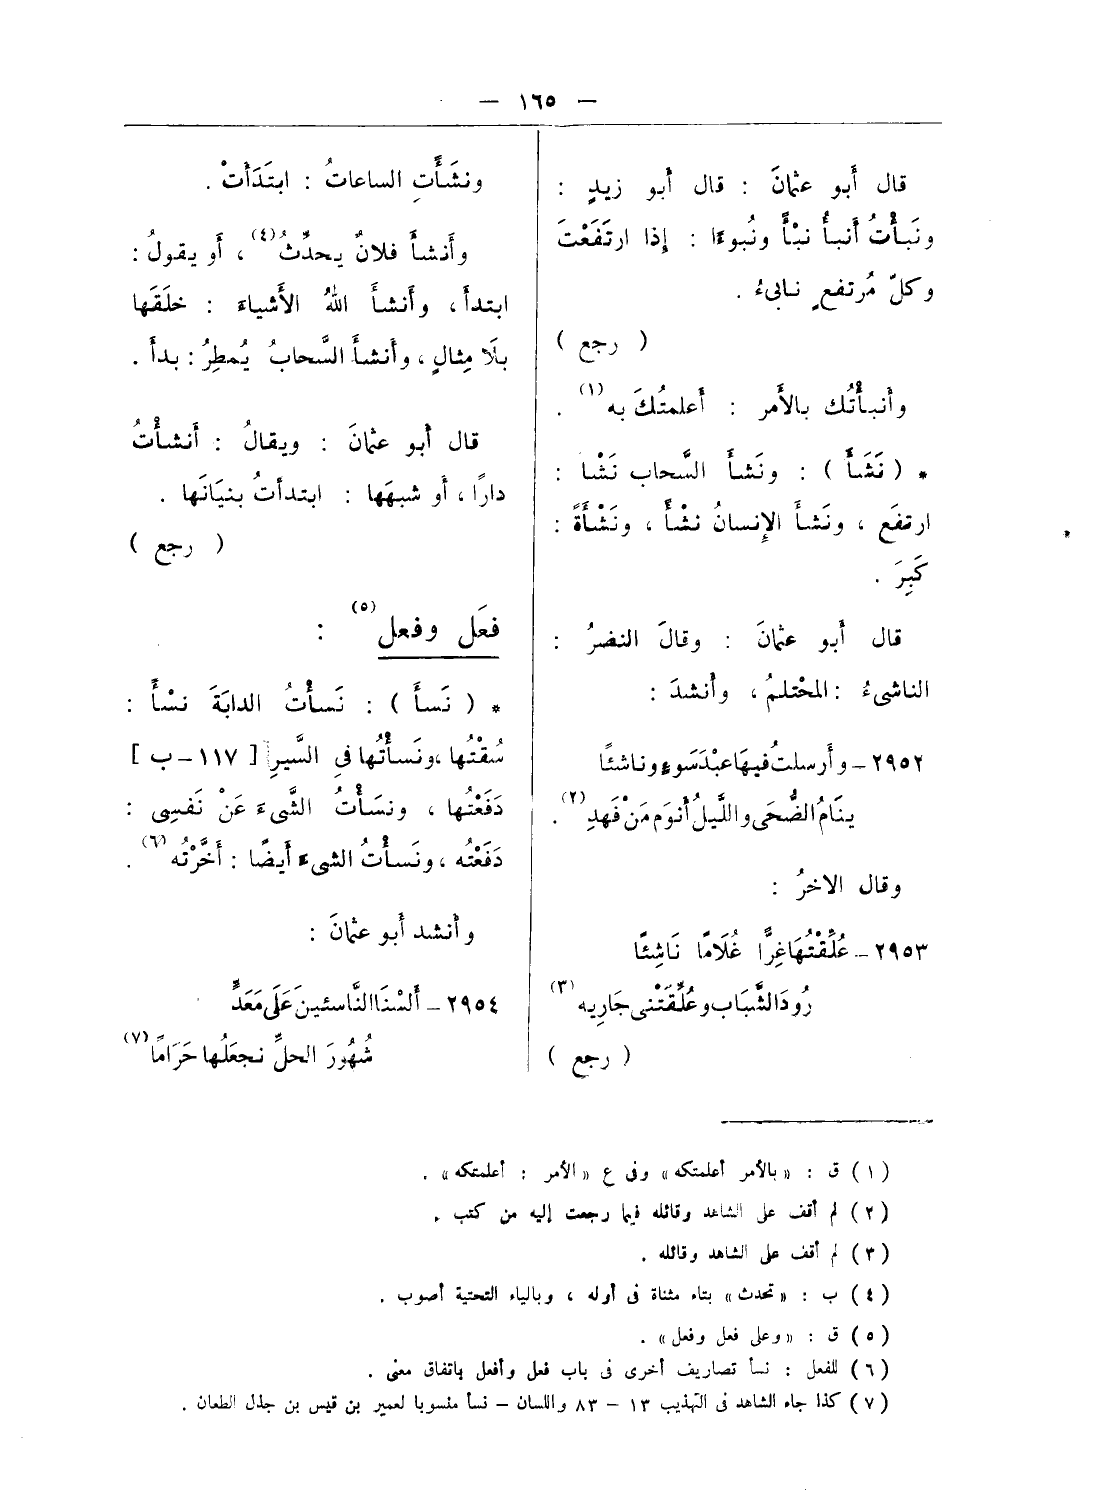 — ١٦٥ —
قال أَبو عثمانَ : قال أَبو زيدٍ :
ونَبأْتُ أَنبأُ نبْأً ونُبوءًا : إِذا ارتَفَعْتَ
وكلّ مُرتفعٍ نابىءُ .
( رجع )
وأَنبأْتُك بالأَمر : أَعلمتُكَ به(١) .
* ( نَشَأَ ) : ونَشأَ السَّحاب نَشْا :
ارتفَع ، ونَشأَ الإِنسانُ نشْأً ، ونَشْأَةً :
كَبِرَ .
قال أَبو عثمانَ : وقالَ النضرُ :
الناشىءُ : المحْتلمُ ، وأَنشدَ :
٢٩٥٢ – وأَرسلتُ فيهَا عبْدَ سَوءٍ وناشئًا
ينَامُ الضُّحَى واللَّيلُ أَنوَم مَنْ فَهدِ(٢) .
وقال الاخرُ :
٢٩٥٣ – عُلِّقْتُهَا غِرًّا غُلَامًا نَاشِئًا
رُودَ الشَّبَاب وعُلِّقَتْنى جَارِيه(٣)
( رجع )
ونشَأَتِ الساعاتُ : ابتَدَأتْ .
وأَنشأَ فلانٌ يحدِّثُ(٤) ، أَو يقولُ :
ابتدأَ ، وأَنشأَ اللهُ الأَشياءَ : خلَقَها
بلَا مِثالٍ ، وأَنشأَ السَّحابُ يُمطِرُ : بدأَ .
قال أَبو عثمانَ : ويقالُ : أَنشأْتُ
دارًا ، أَو شبهَها : ابتدأتُ بنيَانَها .
( رجع )
فعَل وفعل(٥) :
* ( نَسأَ ) : نَسأْتُ الدابَةَ نسْأً :
سُقْتُها ، ونَسأْتُها فىِ السَّيرِ [ ١١٧ – ب ]
دَفَعْتُها ، ونسَأْتُ الشَّىءَ عَنْ نَفسِى :
دَفَعْتُه ، ونَسأْتُ الشىءَ أَيضًا : أَخَّرْتُه(٦) .
وأَنشد أَبو عثمانَ :
٢٩٥٤ – أَلسْنَا النَّاسئينَ عَلَى مَعَدٍّ
شُهُورَ الحلِّ نجعَلُها حَرَامًا(٧)
( ١ ) ق : «بالأمر أعلمتكه» وفى ع «الأمر : أعلمتكه» .
( ٢ ) لم أقف على الشاهد وقائله فيما رجعت إليه من كتب .
( ٣ ) لم أقف على الشاهد وقائله .
( ٤ ) ب : «تحدث» بتاء مثناة فى أوله ، وبالياء التحتية أصوب .
( ٥ ) ق : «وعلى فعل وفعل» .
( ٦ ) للفعل : نسأ تصاريف أخرى فى باب فعل وأفعل باتفاق معنى .
( ٧ ) كذا جاء الشاهد فى التهذيب ١٣ – ٨٣ واللسان – نسأ منسوبا لعمير بن قيس بن جذل الطعان .